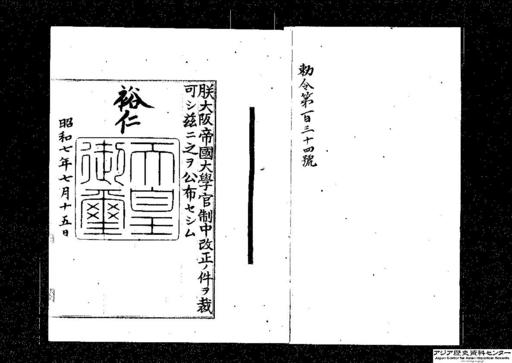 勅令第百三十四號
朕大阪帝國大學官制中改正ノ件ヲ裁
可シ玆ニ之ヲ公布セシム
裕仁
天皇
御璽
昭和七年七月十五日
アジア歴史資料センター
Japan Center for Asian Historical Records